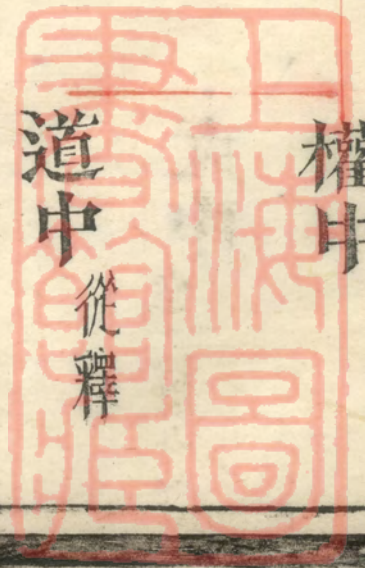 權中
道中從釋
上海圖
書館藏